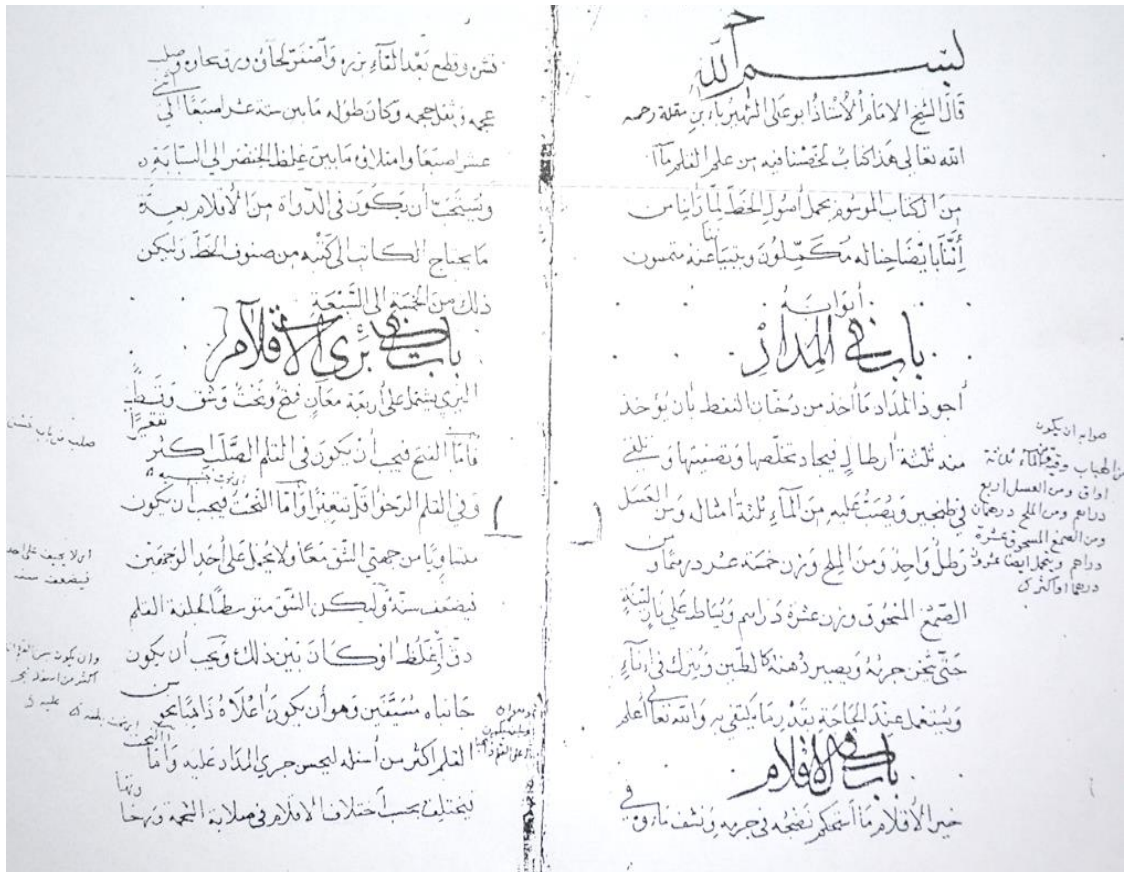 بسم الله
قال الشيخ الامام الأستاذ ابو علي الشهير بابن مقلة رحمه
الله تعالى هذا كتاب لخصنا فيه من علم القلم ما
من الكتاب الموسوم بجمل أصول الخط لما رأينا من
أبوابه
باب في المداد
أجود المداد ما اتخذ من دخان النفط بأن يؤخذ
منه ثلثة أرطال فيجاد نخلها وتصفيتها و تلقى
في طنجير ويصب عليه من المآء ثلثة أمثاله ومن العسل
رطل واحد ومن الملح وزن خمسة عشر درهما و من
الصمغ المسحوق وزن عشرة دراهم ويساط على نار لينة
حتى يثخن جرمه ويصير دهنه كالطين ويترك في إنآء
ويستعمل عند الحاجة بقدر ما يكتفي به والله تعالى أعلم
باب في الاقلام
خير الأقلام ما استحكم نضجه في جرمه ونشف ماؤه في
صوابه ان يكون
من الهباب وقية ومن المآء ثلاثة
اواق ومن العسل اربع
دراهم ومن الملح درهمان
ومن الصمغ المسحوق عشرة
دراهم ويتحمل ايضا عشرون
درهما او اكثر
قشره وقطع بعد القآء بزره واصفر لحاؤه ورق شجره وصلب
عجمه وثقل حجمه وكان طوله ما بين ستة عشر اصبعا الى اثنى
عشر اصبعا وامتلاؤه ما بين غلظ الخنصر الى السبابة
ويستحب أن يكون في الدواة من الأقلام بعدة
ما يحتاج الكاتب الى كتبه من صنوف الخط وليكن
ذلك من الخمسة الى السبعة
باب في بري الاقلام
البري يشتمل على أربعة معان فتح ونحت وشق وقط
فاما الفتح فيجب أن يكون في القلم الصلب اكثر تقعيرا
وفي القلم الرخو اقل تقعيرا واما النحت فيجب أن يكون
متساويا من جهتي الشق معا ولا يحمل على أحد الوجهين
فيضعف سنه وليكن الشق متوسطا لجلفة القلم
دق أو غلظ او كان بين ذلك ويجب أن يكون
جانباه مسيفين وهو أن يكون أعلاه ذاهبا نحو
القلم اكثر من أسفله ليحسن جري المداد عليه وأما
فيختلف بحسب اختلاف الاقلام في صلابة الشحمة ورخا
صلب من باب
اى لا يحيف على احد
فيضعف سنه
وان يكون
اكثر من اسفله
عليه